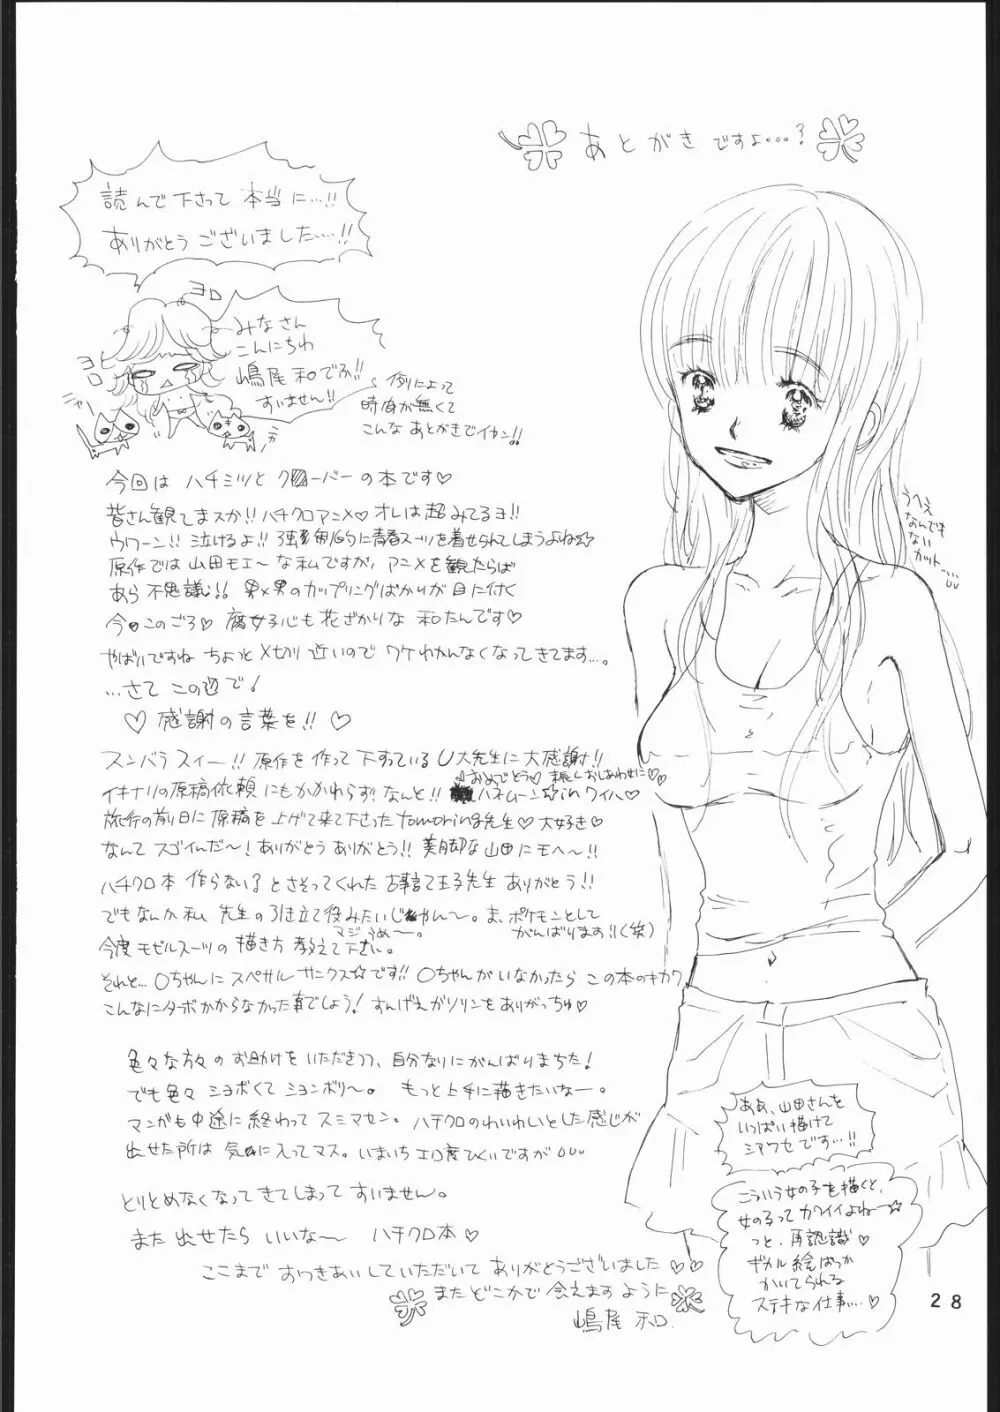 あとがきですよ…?
読んで下さって本当に…!!
ありがとうございました…!!
ヨロ
ヨロ
みなさん
こんにちわ
嶋尾和でふ!!
すいません!!
例によって
時間が無くて
こんなあとがきでイカン!!
ニャー
今回はハチミツとクローバーの本です♡
皆さん観てまスか!!ハチクロアニメ♡オレは超みてるヨ!!
ウワーン!!泣けるよ!!強制的に青春スーツを着せられてしまうよね☆
原作では山田モエ〜な私ですが、アニメを観たらば
あら不思議!!男×男のカップリングばかりが目に付く
今日このごろ♡腐女子心も花ざかりな和たんです♡
やばいですねちょっと〆切り近いのでワケわかんなくなってきてます…。
…さてこの辺で!
♡感謝の言葉を!!♡
スンバラスィー!!原作を作って下すっているU大先生に大感謝!!
おめでとう♡末長しおしあわせに♡♡
イキナリの原稿依頼にもかかわらず!なんと!!ハネムーン☆inワイハ♡
旅行の前日に原稿を上げて来て下さったtomoring先生♡大好き♡
なんてスゴイんだ〜!ありがとうありがとう!!美脚な山田にモヘ〜!!
ハチクロ本作らない?とさそってくれた古事言て王子先生ありがとう!!
でもなんか私先生の引き立て役みたいじゃん〜。ま、ポケモンとして
がんばります!!(笑)
マジうめ〜。
今度モビルスーツの描き方教えて下さい。
それと…○ちゃんにスペサルサンクス☆です!!○ちゃんがいなかったらこの本のキカク
こんなにターボかからなかった事でしょう!すんげえガソリンをありがっちゅ♡
色々な方々のお助けをいただきつつ、自分なりにがんばりまちた!
でも色々ショボくてションボリ〜。もっと上手に描きたいなー。
マンガも中途に終わってスミマセン。ハチクロのわいわいとした感じが
出せた所は気に入ってマス。いまいちエロ度ひくいですが
とりとめなくなってきてしまってすいません。
また出せたらいいな〜ハチクロ本♡
ここまでおつきあいしていただいてありがとうございました♡♡
またどこかで会えますように
嶋尾和.
うへえ
なんでも
ない
カット…
ああ、山田さんを
いっぱい描けて
シアワセです…!!
こういう女の子を描くと、
女の子ってカワイイよねー☆
っと、再認識♡
ギカル絵ばっか
かいてられる
ステキな仕事…♡
28